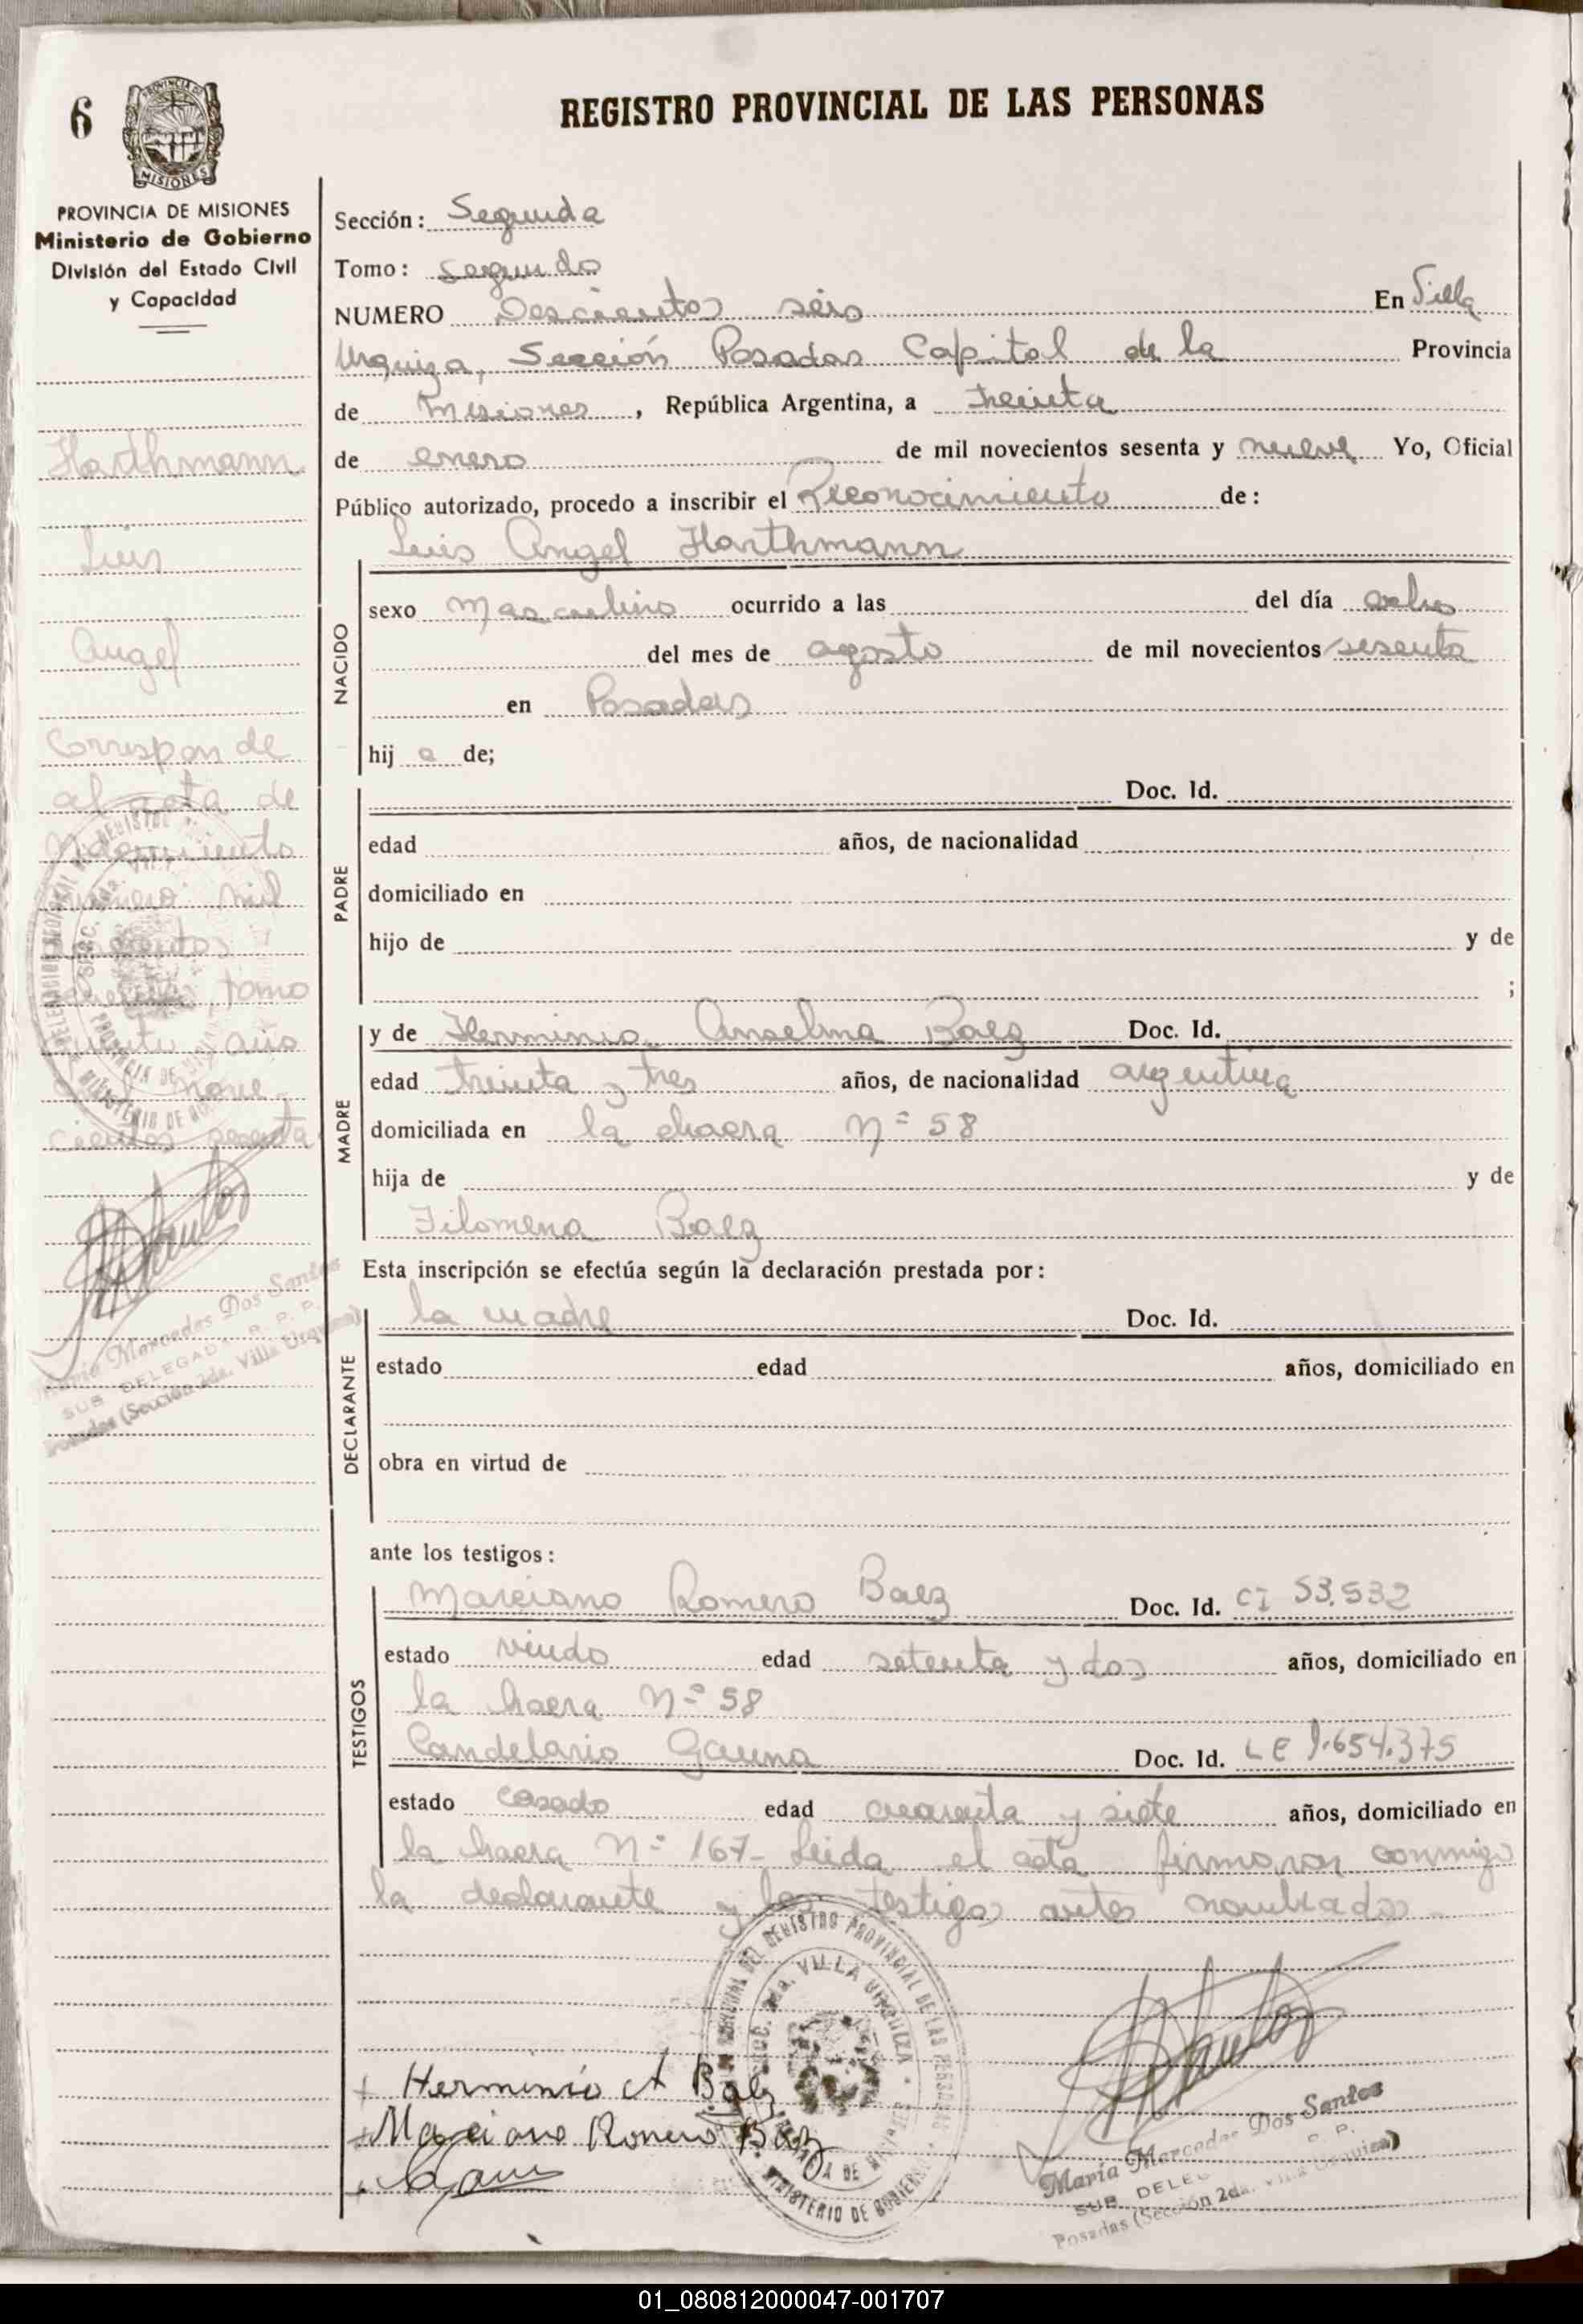 6
PROVINCIA DE MISIONES
PROVINCIA DE MISIONES
Ministerio de Gobierno
División del Estado Civil
y Capacidad
Harthmann
Luis
Angel
Corresponde
al acta de
nacimiento
número mil
tomo
año
mil nove
cientos sesenta
María Mercedes Dos Santos
SUB DELEGADA R. P. P.
Posadas (Sección 2da. Villa Urquiza)
REGISTRO PROVINCIAL DE LAS PERSONAS
Sección: Segunda
Tomo: Segundo
NUMERO Doscientos seis En Villa
Urquiza, Sección Posadas Capital de la Provincia
de Misiones, República Argentina, a treinta
de enero de mil novecientos sesenta y nueve Yo, Oficial
Público autorizado, procedo a inscribir el Reconocimiento de:
Luis Angel Harthmann
NACIDO
sexo masculino ocurrido a las del día ocho
del mes de agosto de mil novecientos sesenta
en Posadas
hij o de;
PADRE
Doc. Id.
edad años, de nacionalidad
domiciliado en
hijo de y de
;
MADRE
y de Herminio Anselma Baez Doc. Id.
edad treinta y tres años, de nacionalidad argentina
domiciliada en la chacra Nº 58
hija de y de
Filomena Baez
Esta inscripción se efectúa según la declaración prestada por:
DECLARANTE
la madre Doc. Id.
estado edad años, domiciliado en
obra en virtud de
ante los testigos:
TESTIGOS
Marciano Romero Baez Doc. Id. CI 53.532
estado viudo edad setenta y dos años, domiciliado en
la hacra Nº 58
Candelario Gauna Doc. Id. LE 1.654.375
estado casado edad cuarenta y siete años, domiciliado en
la hacra Nº 167- Leida el acta firmaron conmigo
la declarante y los testigos antes nombrados
Herminio A Baez
Marciano Romero Baez
María Mercedes Dos Santos
SUB DELE
Posadas (Sección 2da. Villa Urquiza)
01_080812000047-001707